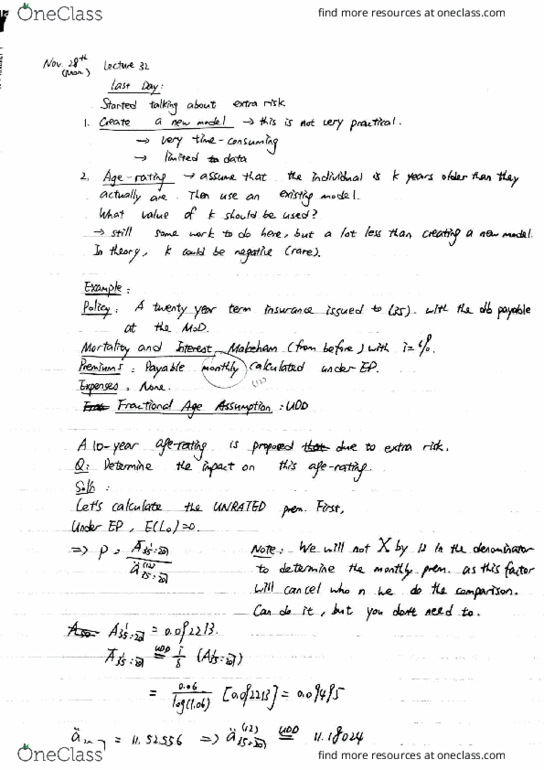 OneClass
find more resources at oneclass.com
Nov. 28th Lecture 32
(Mon.)
Last Day:
Started talking about extra risk
1. Create a new model → this is not very practical.
→ very time-consuming
→ limited to data
2. Age-rating → assume that the individual is k years older than they
actually are. Then use an existing model.
What value of k should be used?
→ still some work to do here, but a lot less than creating a new model.
In theory, k could be negative (rare).
Example:
Policy: A twenty year term insurance issued to (35). with the db payable
at the MoD.
Mortality and Interest: Makeham (from before) with i=
Premiums: Payable monthly calculated under EP.
(12)
Expenses: None.
Fractional Age Assumption: UDD
A 10-year age-rating is proposed that due to extra risk.
Q: Determine the impact on this age-rating.
Sol'n:
Let's calculate the UNRATED prem. First,
Under EP, E(L₀)=0.
⇒ P = Ā 35:20 / ä(12) 35:20
Note: We will not X by 12 in the denominator
to determine the monthly prem. as this factor
will cancel who n we do the comparison.
Can do it, but you don't need to.
A 35:20 = 0.092213.
Ā 35:20 UDD = i/δ (A 35:20)
= 0.06 / log(1.06) [0.092213] = 0.09495
ä = 11.52556 ⇒ ä(12) 35:20 UDD = 11.18024
OneClass
find more resources at oneclass.com